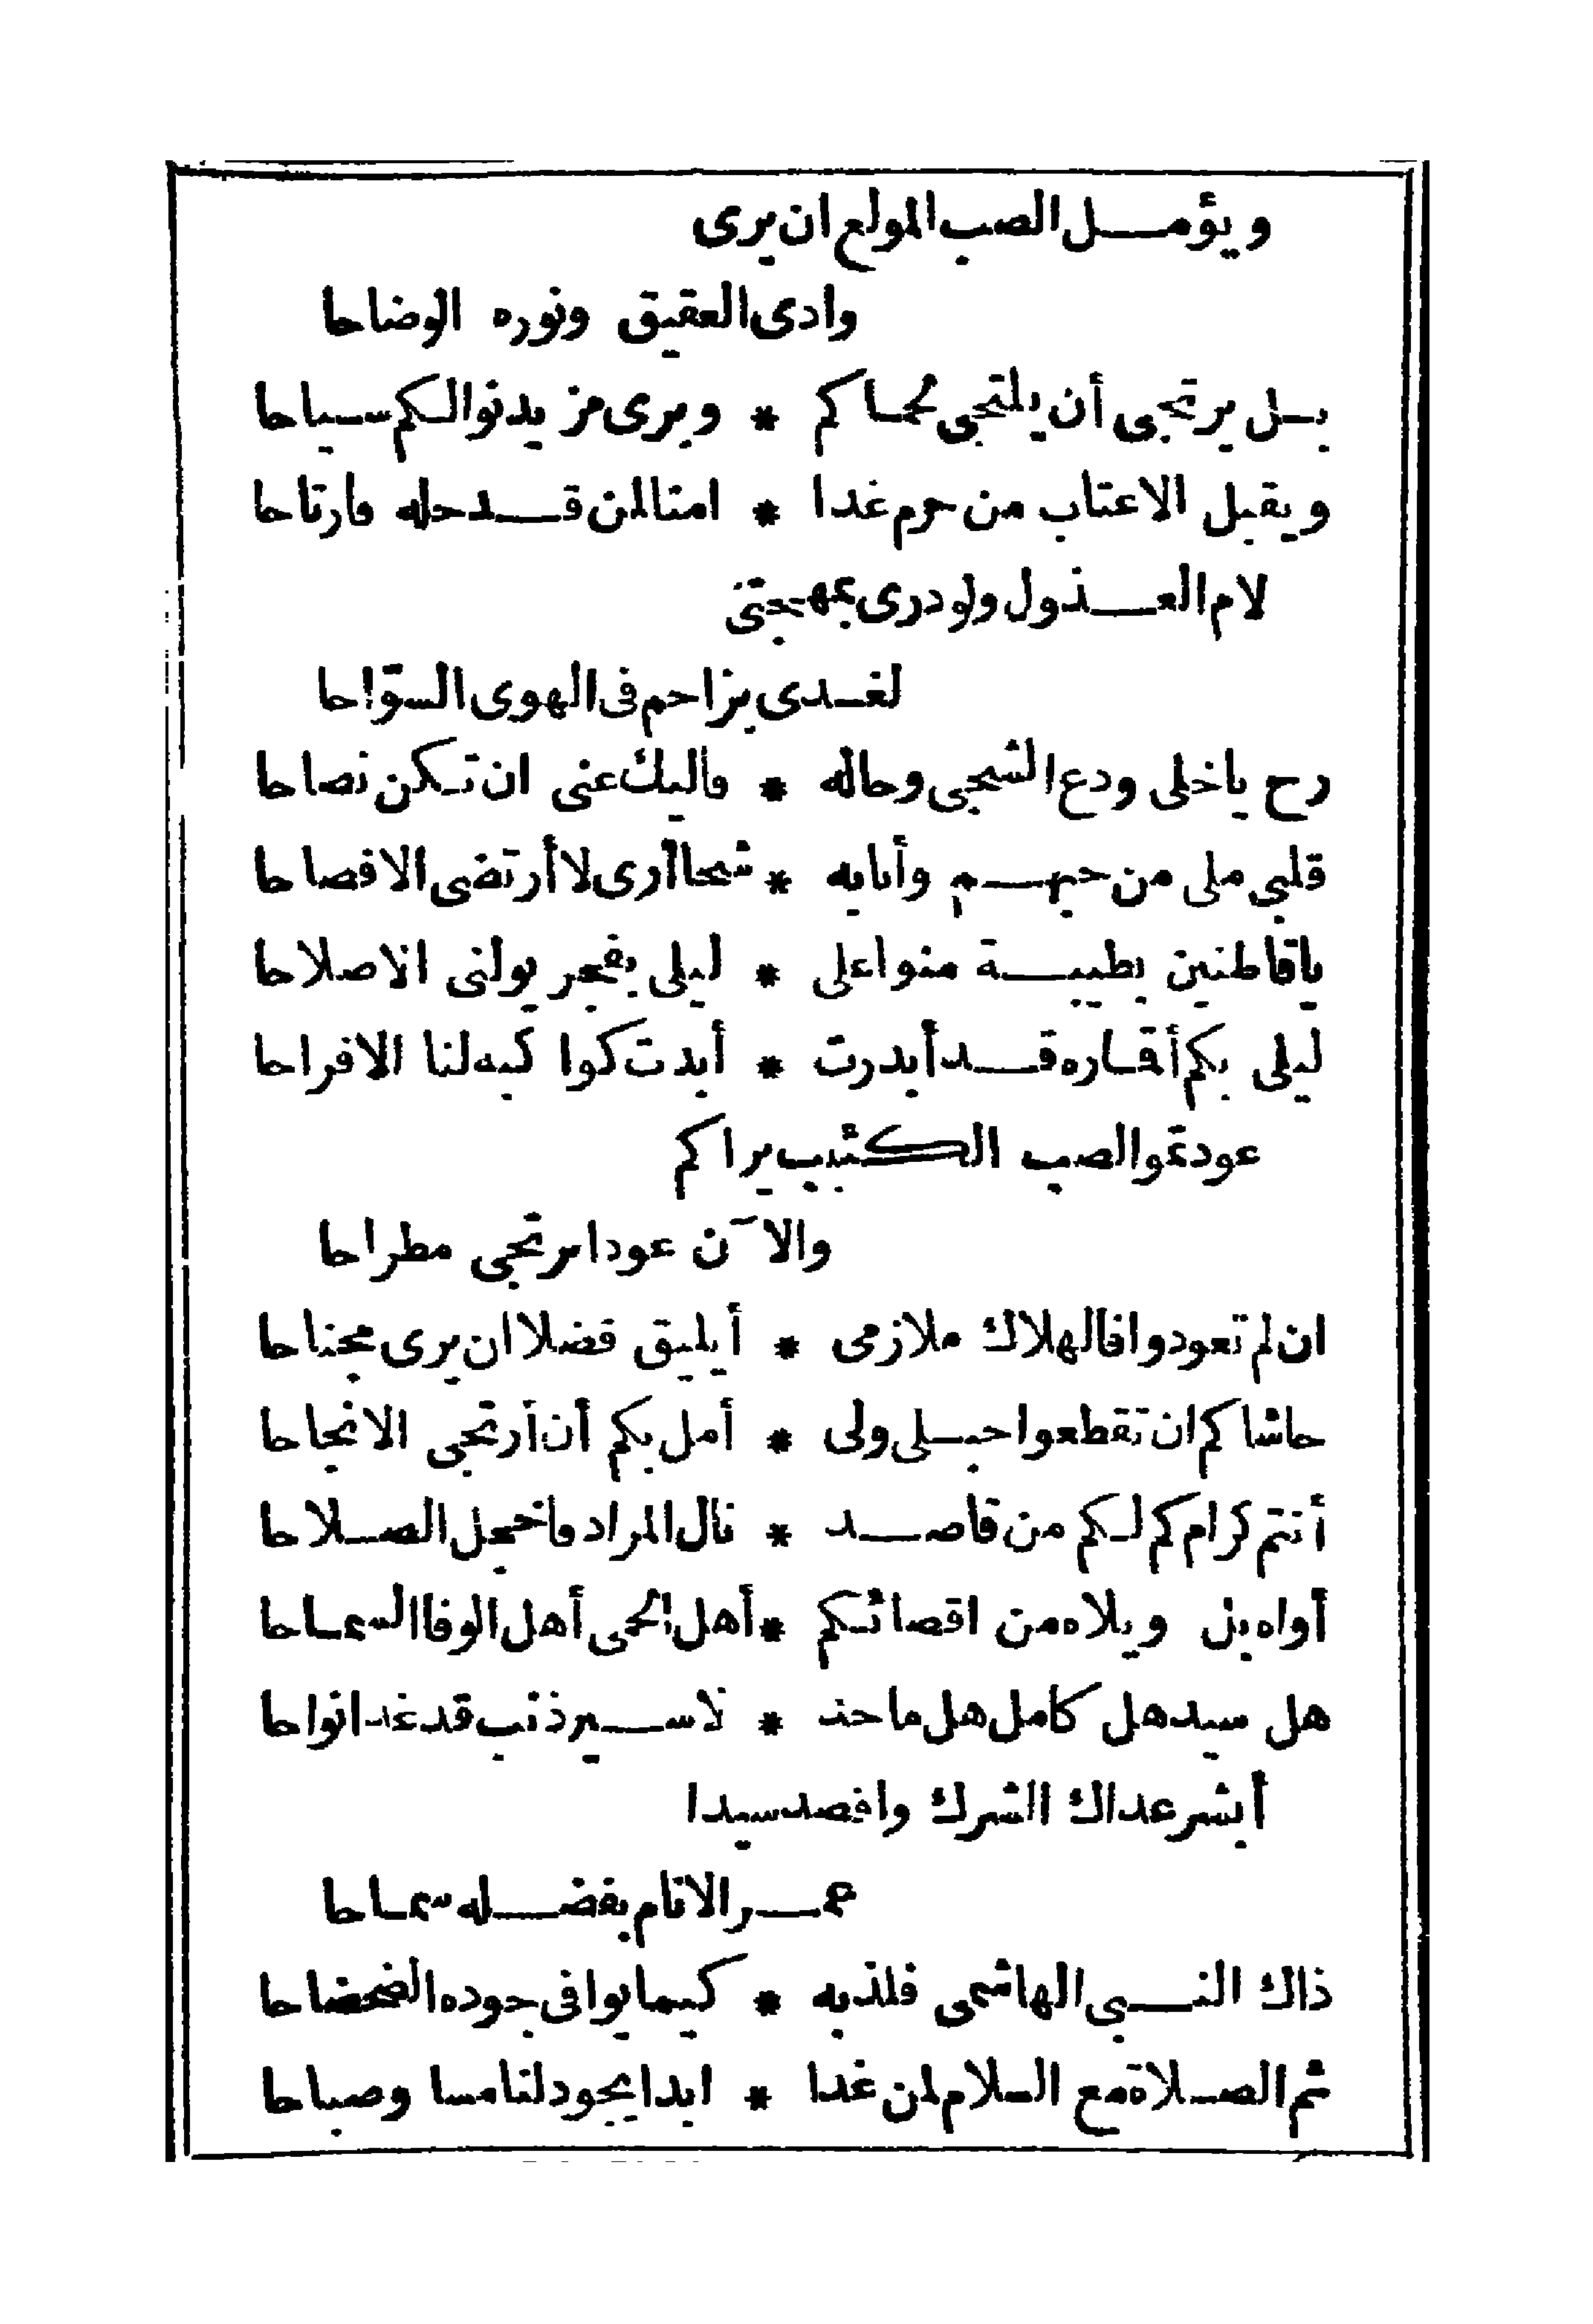 ويؤمل الصب المولع ان يرى
وادى العقيق ونوره الوضاحا
بل يرتجى أن يلتجى لحماكم * ويرى من يدنوا لكم سياحا
ويقبل الاعتاب من حرم غدا * امنا لمن قد حله فارتاحا
لام العذول ولو درى بمهجتى
لغدى يزاحم فى الهوى السوّاحا
رح ياخلى ودع الشجى وحاله * فاليك عنى ان تكن نصاحا
قلبى ملى من حبهم وأنابه * شحا أرى لا أرتضى الافصاحا
ياقاطنين بطيبة منوا على * ليلى بفجر يولنى الاصلاحا
ليلى بكم أقماره قد أبدرت * أبدت كواكبه لنا الافراحا
عودتموا الصب الكئيب يراكم
والآن عودا يرتجى مطراحا
ان لم تعودوا فالهلاك ملازمى * أيليق فضلا ان يرى مجناحا
حاشاكم ان تقطعوا حبلى ولى * أمل بكم أن أرتجى الانجاحا
أنتم كرام كم لكم من قاصد * نال المراد فاخجل الصلاحا
أواه بل ويلاه من اقصائكم * أهل الحمى أهل الوفا السماحا
هل سيد هل كامل هل ماجد * لاسير ذنب قد غدا نواحا
أبشر عداك الشرك واقصد سيدا
عمر الانام بفضله سماحا
ذاك النبى الهاشمى فلذ به * كيما يوافى جوده الضحضاحا
ثم الصلاة مع السلام لمن غدا * ابدا يجود لنا مسا وصباحا